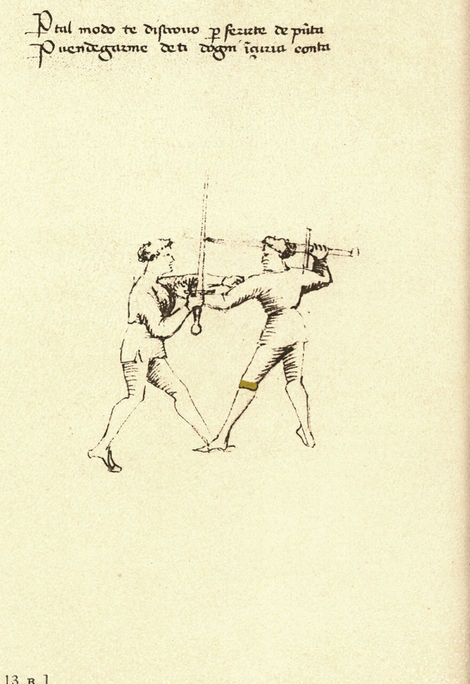 P tal modo te discrovo p ferirte de pũta
P uendegarme de ti dogni ĩiuria conta
13 B 1